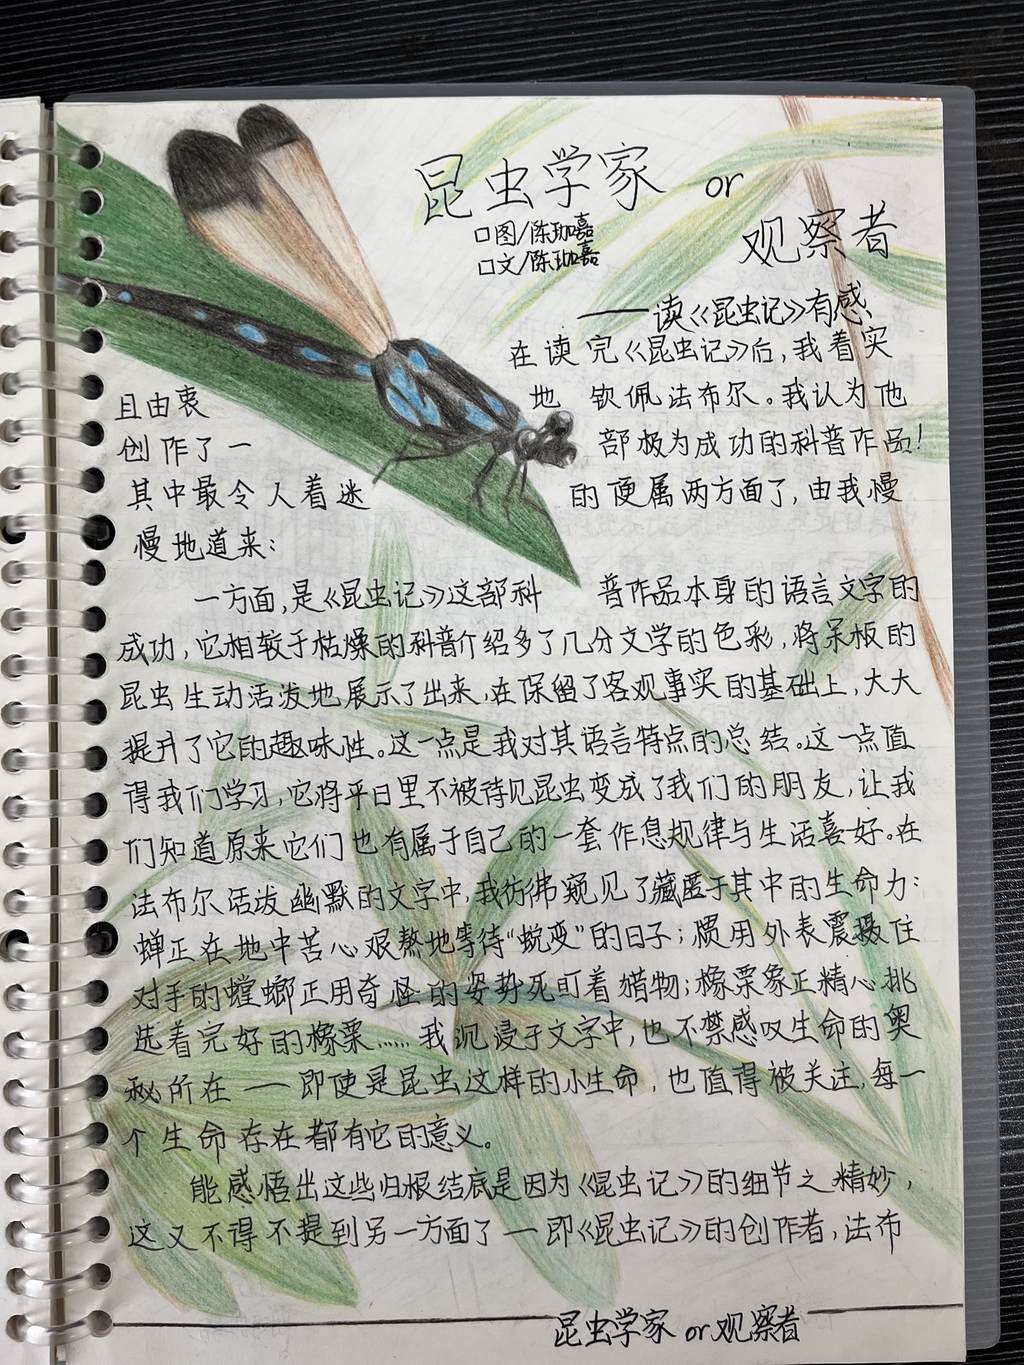 昆虫学家 or
观察者
□图/陈珈嘉
□文/陈珈嘉
——读《昆虫记》有感
在读完《昆虫记》后，我着实
且由衷地 钦佩法布尔。我认为他
创作了一部极为成功的科普作品！
其中最令人着迷的便属两方面了，由我慢
慢地道来：
一方面，是《昆虫记》这部科普作品本身的语言文字的
成功，它相较于枯燥的科普介绍多了几分文学的色彩，将呆板的
昆虫生动活泼地展示了出来，在保留了客观事实的基础上，大大
提升了它的趣味性。这一点是我对其语言特点的总结。这一点值
得我们学习，它将平日里不被待见昆虫变成了我们的朋友，让我
们知道原来它们也有属于自己的一套作息规律与生活喜好。在
法布尔活泼幽默的文字中，我仿佛窥见了藏匿于其中的生命力：
蝉正在地中苦心艰熬地等待“蜕变”的日子；惯用外表震摄住
对手的螳螂正用奇怪的姿势死盯着猎物；橡栗象正精心挑
选着完好的橡栗……我沉浸于文字中，也不禁感叹生命的奥
秘所在——即使是昆虫这样的小生命，也值得被关注，每一
个生命存在都有它的意义。
能感悟出这些归根结底是因为《昆虫记》的细节之精妙，
这又不得不提到另一方面了—即《昆虫记》的创作者，法布
昆虫学家 or 观察者